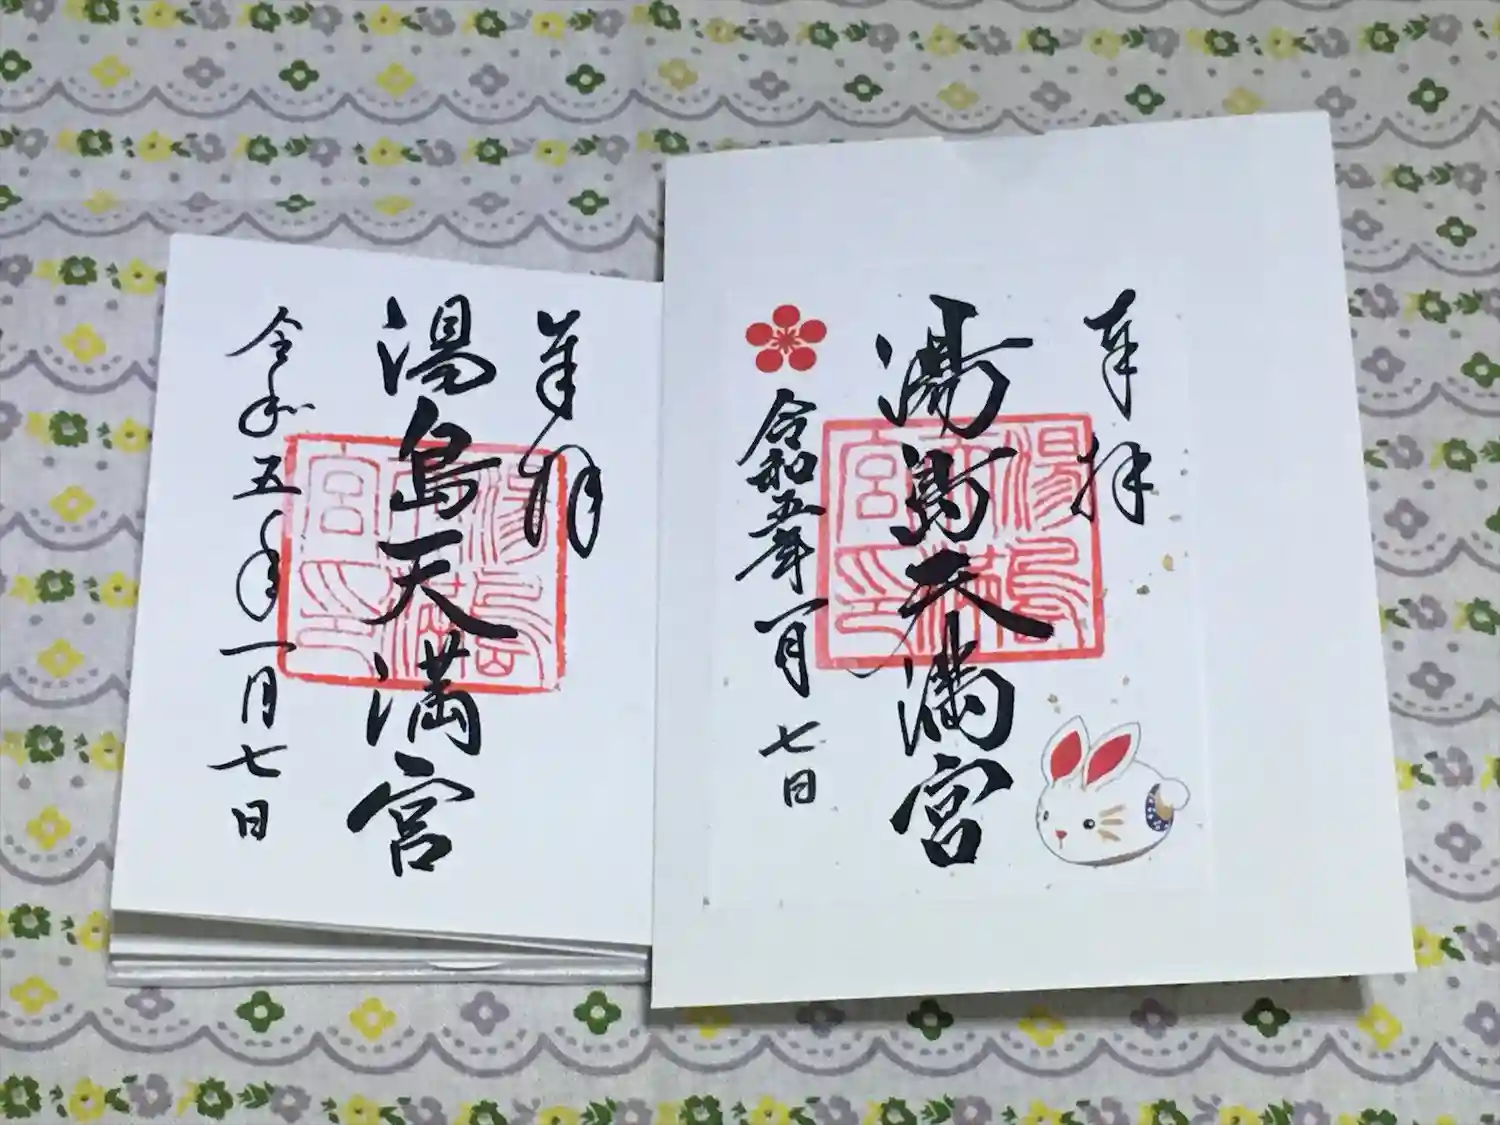 奉拝
湯島天満宮
令和五年一月七日
湯島天満宮印
奉拝
湯島天満宮
令和五年一月七日
湯島天満宮印